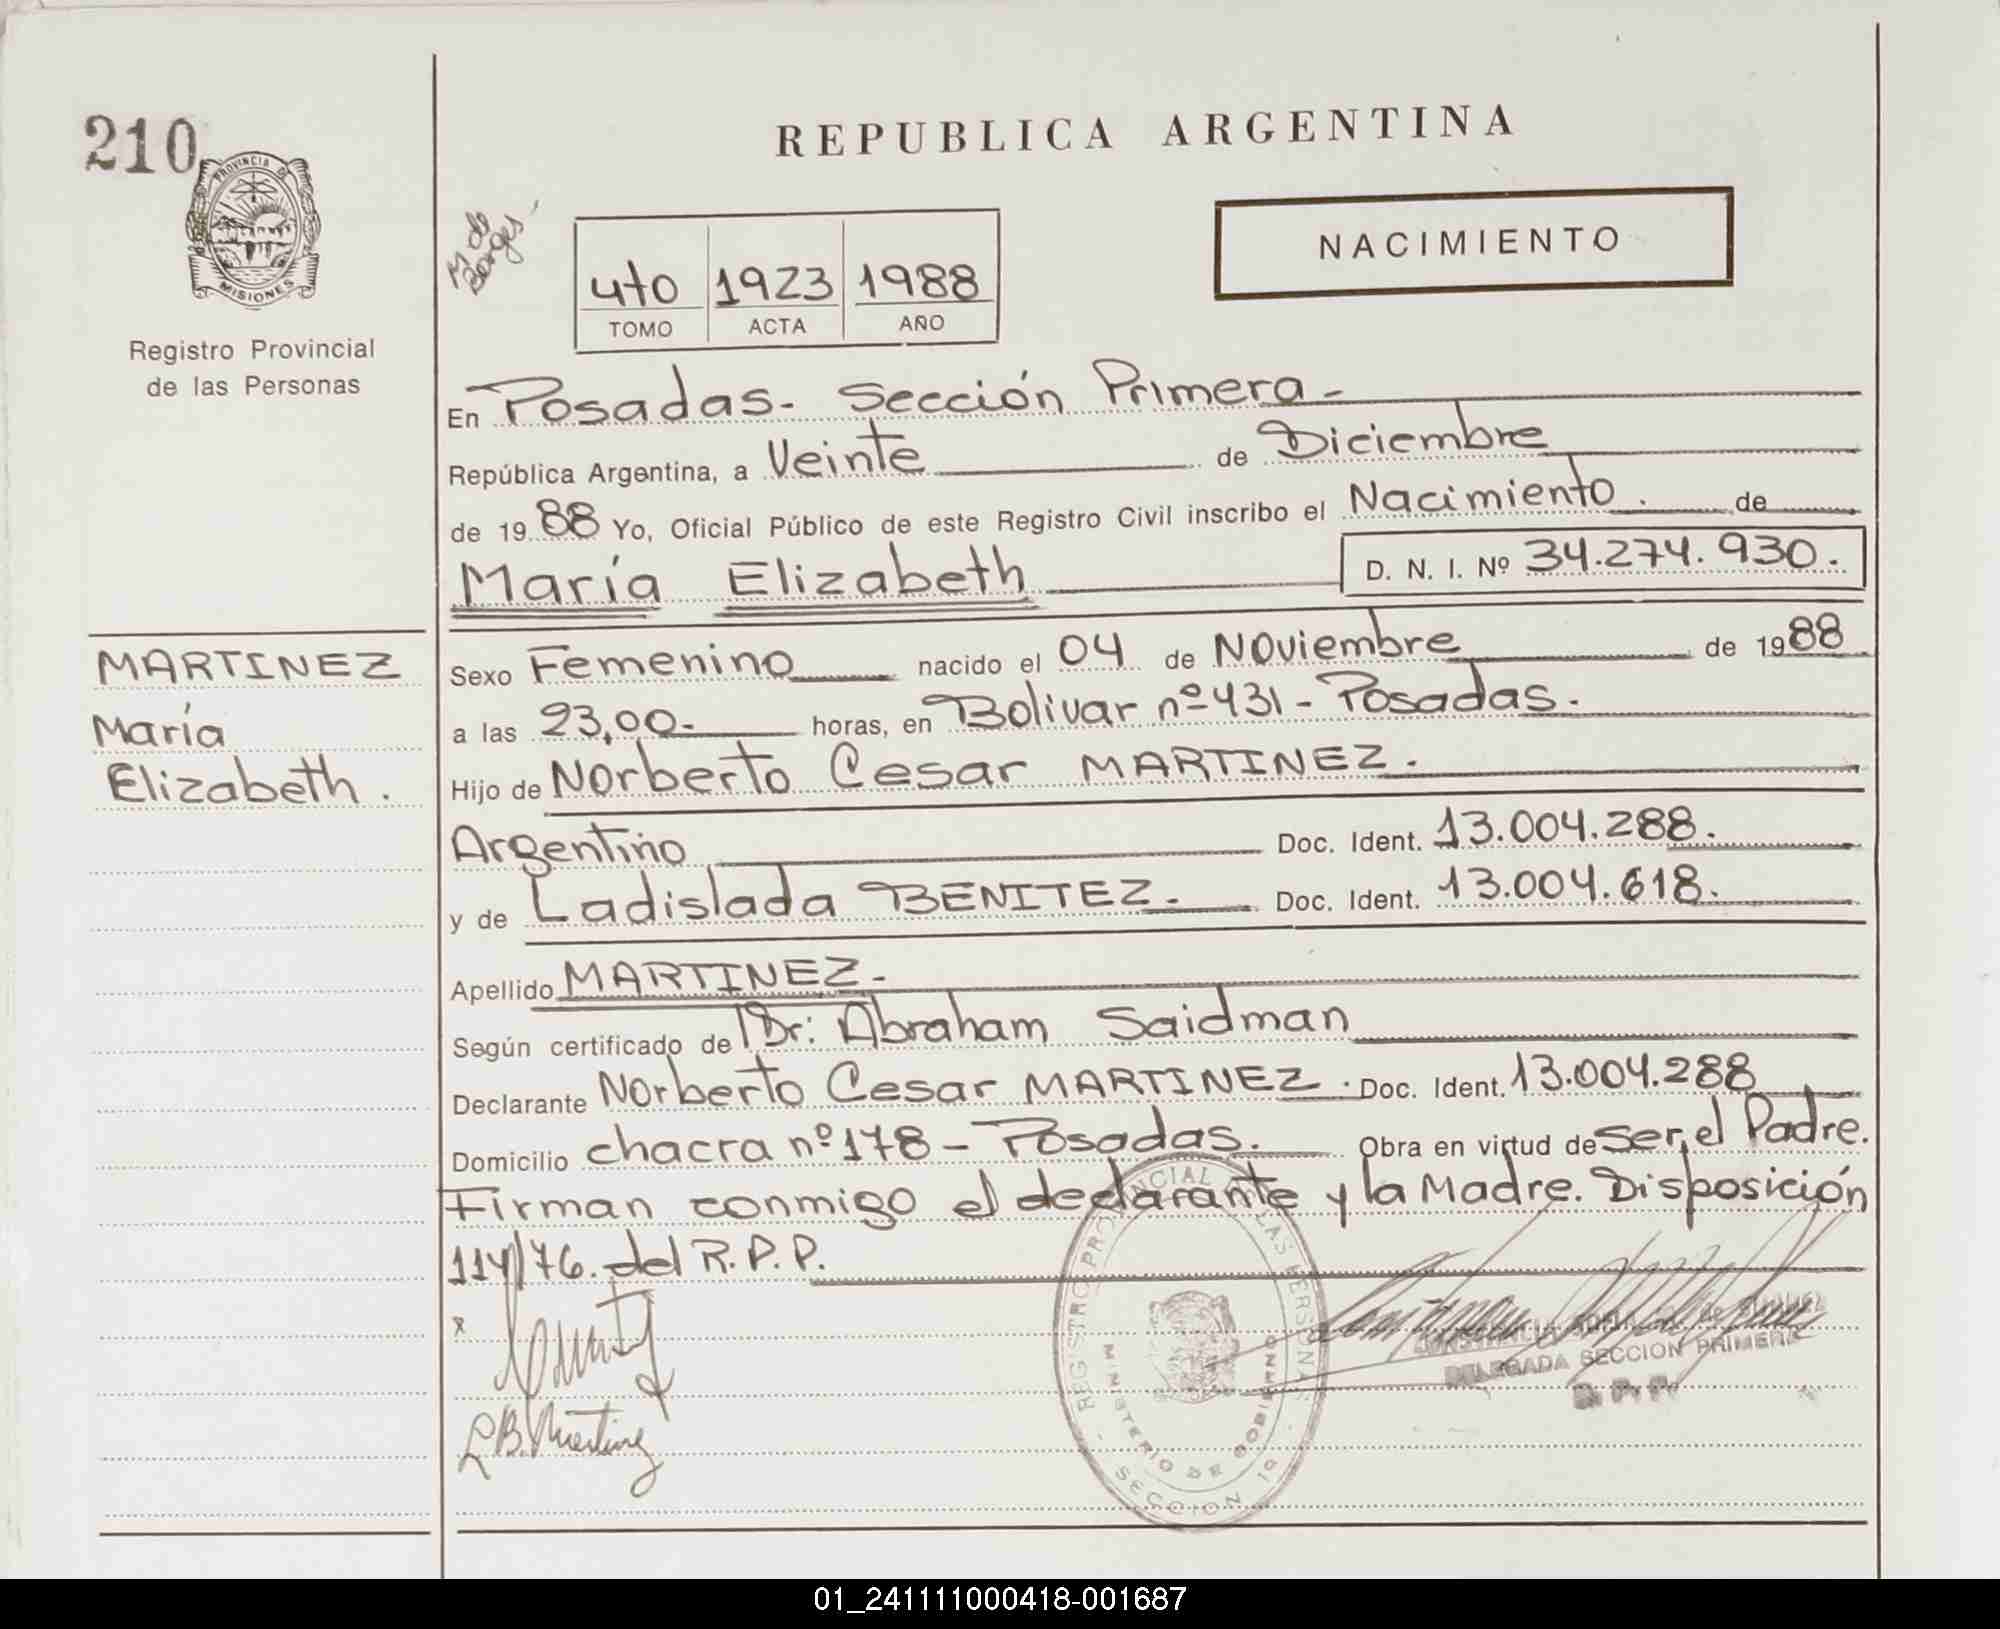 210
PROVINCIA DE
MISIONES
Registro Provincial
de las Personas
REPUBLICA ARGENTINA
M de
Borges
4to 1923 1988
TOMO ACTA AÑO
NACIMIENTO
En Posadas - Sección Primera -
República Argentina, a Veinte de Diciembre
de 1988 Yo, Oficial Público de este Registro Civil inscribo el Nacimiento. de
María Elizabeth D. N. I. Nº 34.274.930.
MARTINEZ
María
Elizabeth.
Sexo Femenino nacido el 04 de Noviembre de 1988
a las 23,00- horas, en Bolivar nº 431 - Posadas.
Hijo de Norberto Cesar MARTINEZ.
Argentino Doc. Ident. 13.004.288.
y de Ladislada BENITEZ. Doc. Ident. 13.004.618.
Apellido MARTINEZ -
Según certificado de Dr: Abraham Saidman
Declarante Norberto Cesar MARTINEZ. Doc. Ident. 13.004.288
Domicilio chacra nº 178 - Posadas. Obra en virtud de ser el Padre.
Firman conmigo el declarante y la Madre. Disposición
114/76. del R.P.P.
x
L B. Martinez
REGISTRO PROVINCIAL DE LAS PERSONAS
MINISTERIO DE GOBIERNO
SECCION 1a
DELEGADA SECCION PRIMERA
R. P. P.
01_241111000418-001687